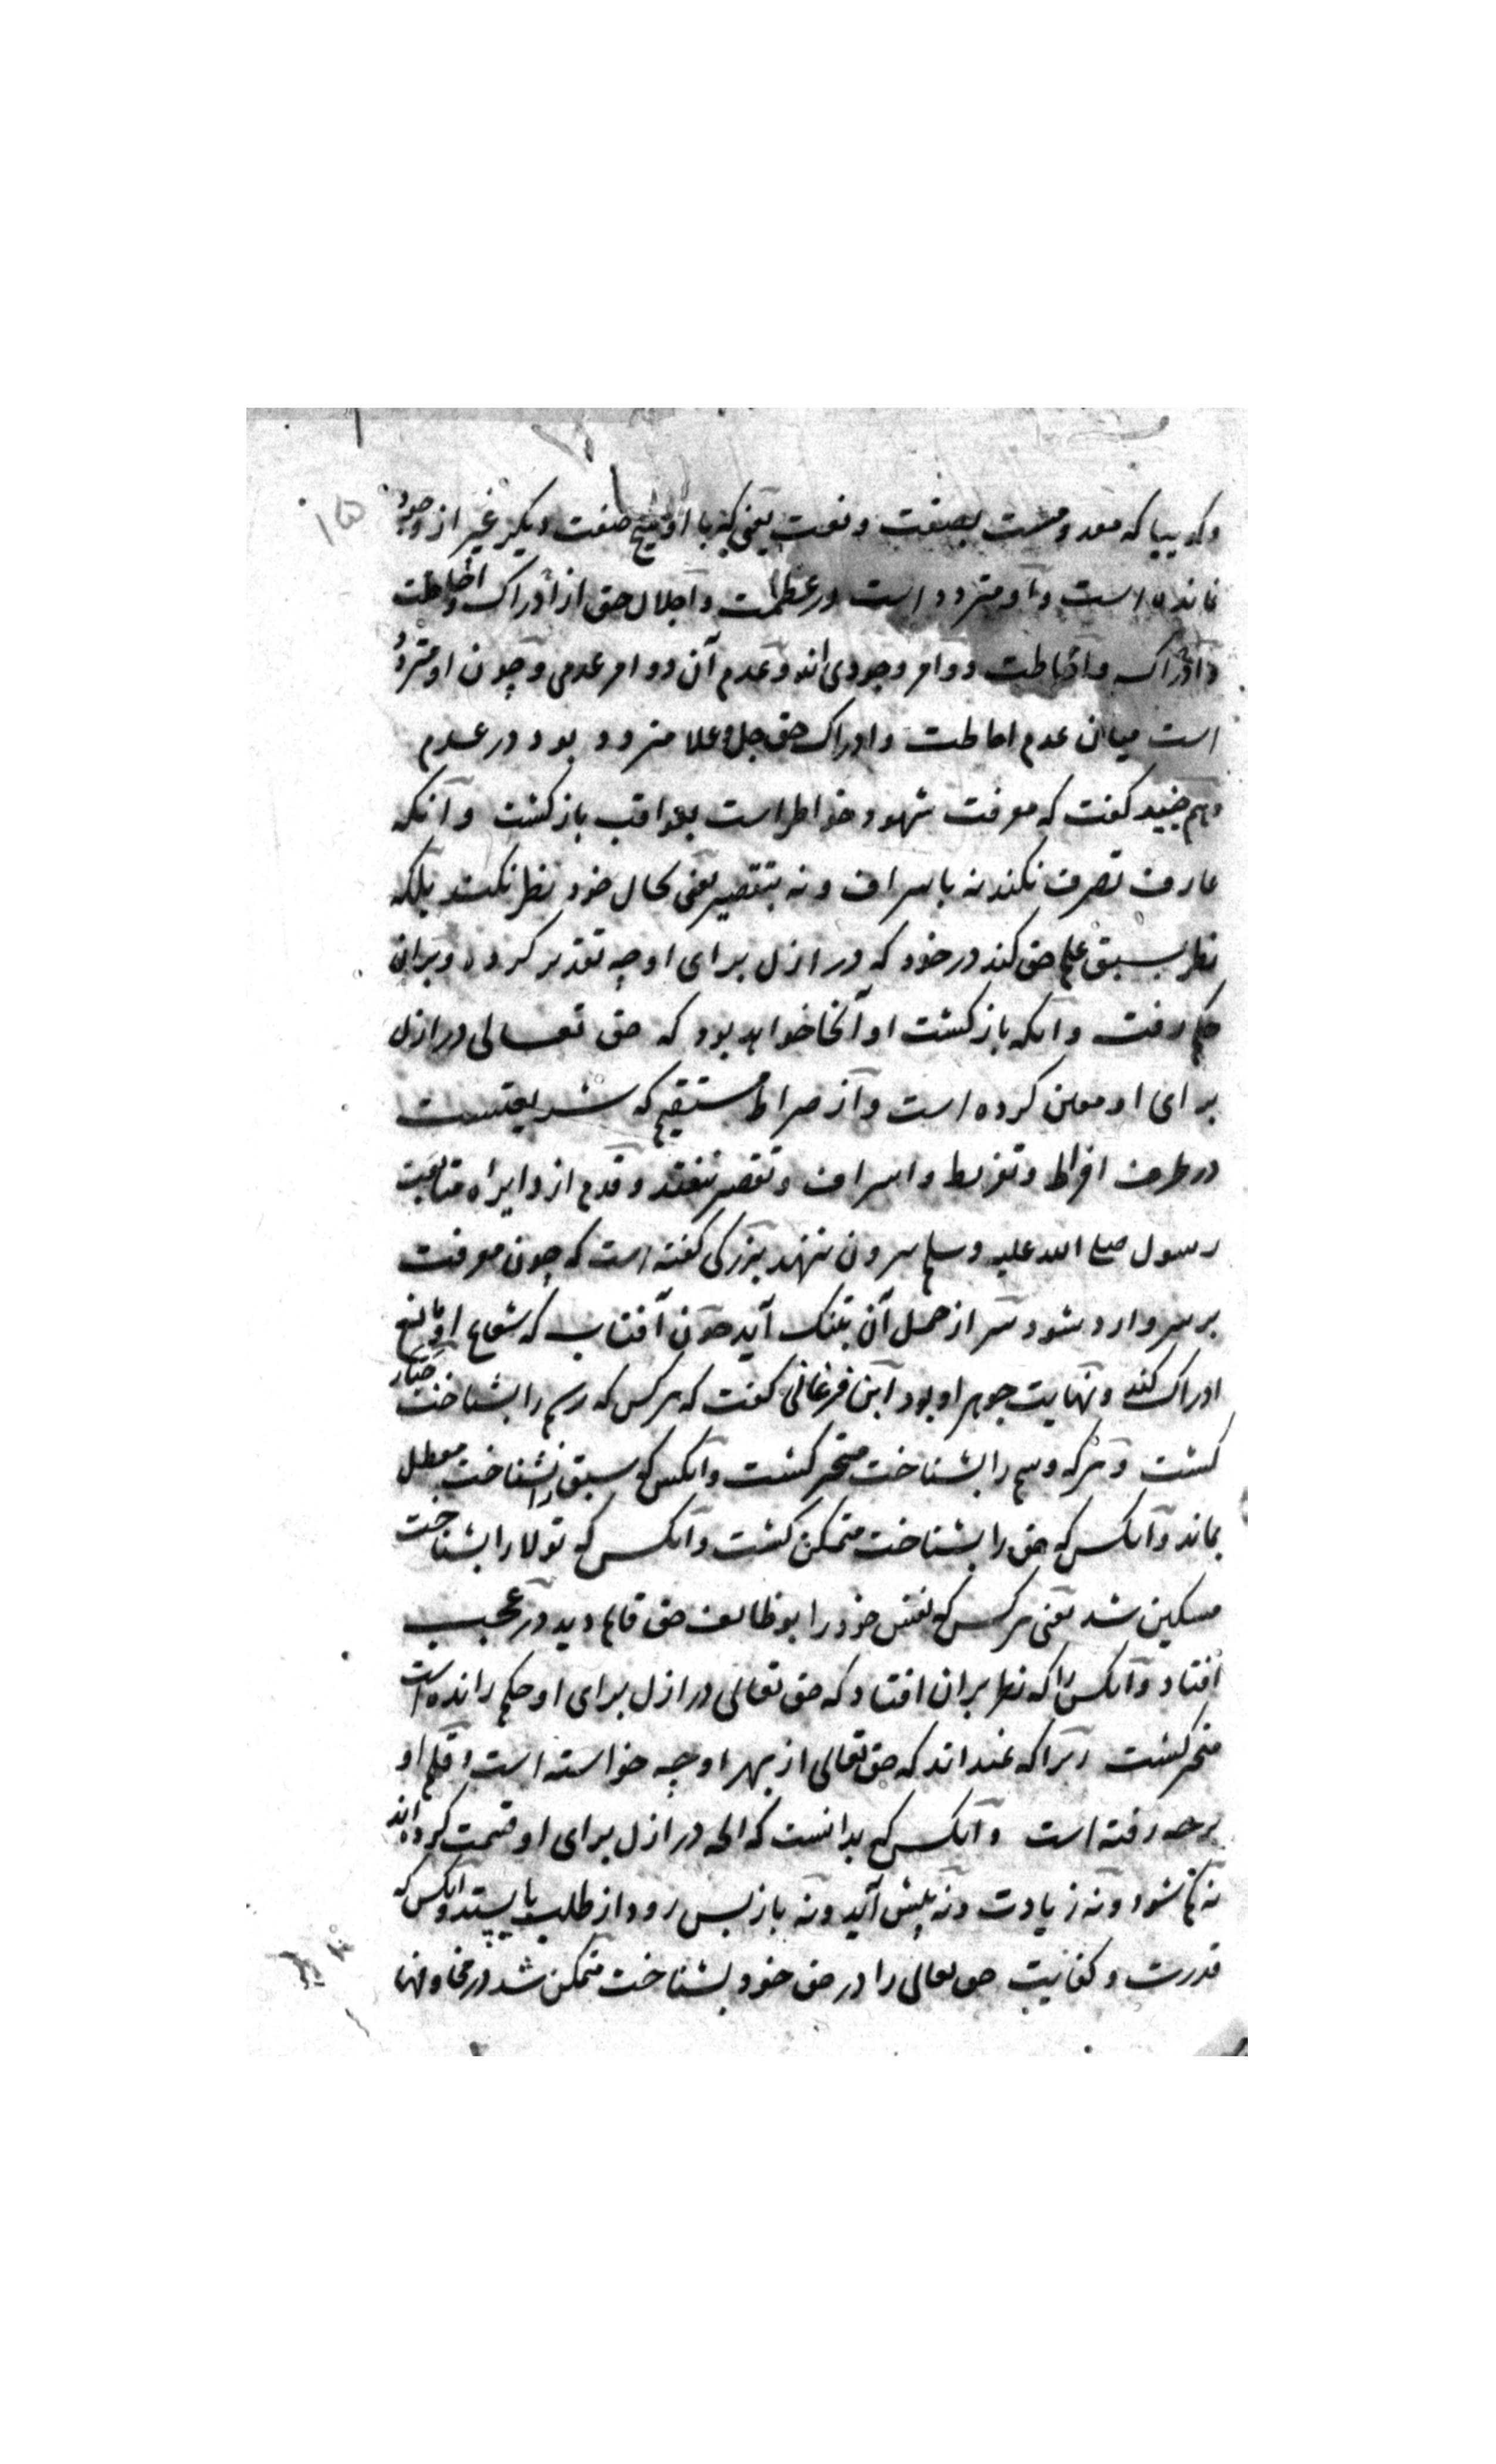 وگوییا که معدومست بصفت و نعت یعنی که با او هیچ صفت دیگر غیر از وجود
نمانده است و او متردد است در عظمت و اجلال حق از ادراک و احاطت
و ادراک و احاطت دو امر وجودی اند و عدم آن دو امر عدمی و چون او متردد
است میان عدم احاطت و ادراک حق جل و علا متردد بود در عدم
و هم جنید گفت که معرفت شهود خواطر است بعواقب بازگشت و آنکه
عارف تصرف نکند نه باسراف و نه بتقصیر یعنی بحال خود نظر نکند بلکه
نظر بسبق علم حق کند در خود که در ازل برای او چه تقدیر کرده و بر آن
حکم رفت و آنکه بازگشت او آنجا خواهد بود که حق تعالی در ازل
برای او معین کرده است و از صراط مستقیم که شریعتست
در طرف افراط و تفریط و اسراف و تقصیر نیفتد و قدم از دایره متابعت
رسول صلی الله علیه وسلم بیرون ننهد بزرگی گفته است که چون معرفت
بر سر وارد شود سر از حمل آن بتنگ آید چون آفتاب که شعاع او مانع
ادراک کند و نهایت جوهر او بود ابن فرغانی گفت که هر کس که رسم را بشناخت جبار
گشت و هر که وسم را بشناخت متحیر گشت و آنکس که سبق را بشناخت معطل
بماند و آنکس که حق را بشناخت متمکن گشت و آنکس که تولا را بشناخت
مسکین شد یعنی هر کس که نفس خود را بوظائف حق قایم دید در عجب
افتاد و آنکس را که نظر بر آن افتاد که حق تعالی در ازل برای او حکم رانده است
متحیر گشت زیرا که نمیداند که حق تعالی از بهر او چه خواسته است و قلم او
برچه رفته است و آنکس که بدانست که آنچه در ازل برای او قسمت کرده اند
نه کم شود و نه زیادت و نه پیش آید و نه باز پس رود از طلب بایستد و آنکس که
قدرت و کفایت حق تعالی را در حق خود بشناخت متمکن شد در مخاوفها